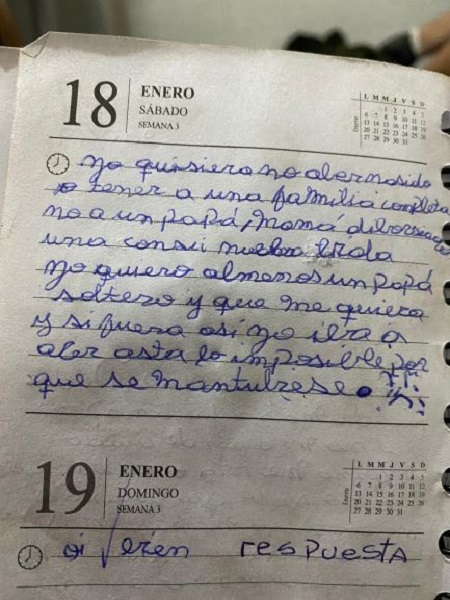 18 ENERO
SÁBADO
SEMANA 3
L M M J V S D
Enero
1 2 3 4 5
6 7 8 9 10 11 12
13 14 15 16 17 18 19
20 21 22 23 24 25 26
27 28 29 30 31
yo quisiera no aber nasido
tener a una familia completa
no a un papá, mamá diborsiado
una
yo quiero almenos un papá
soltero y que me quiera
y si fuera asi yo iria a
aler asta lo imposible por
que se mantubiese
19 ENERO
DOMINGO
SEMANA 3
L M M J V S D
Enero
1 2 3 4 5
6 7 8 9 10 11 12
13 14 15 16 17 18 19
20 21 22 23 24 25 26
27 28 29 30 31
respuesta